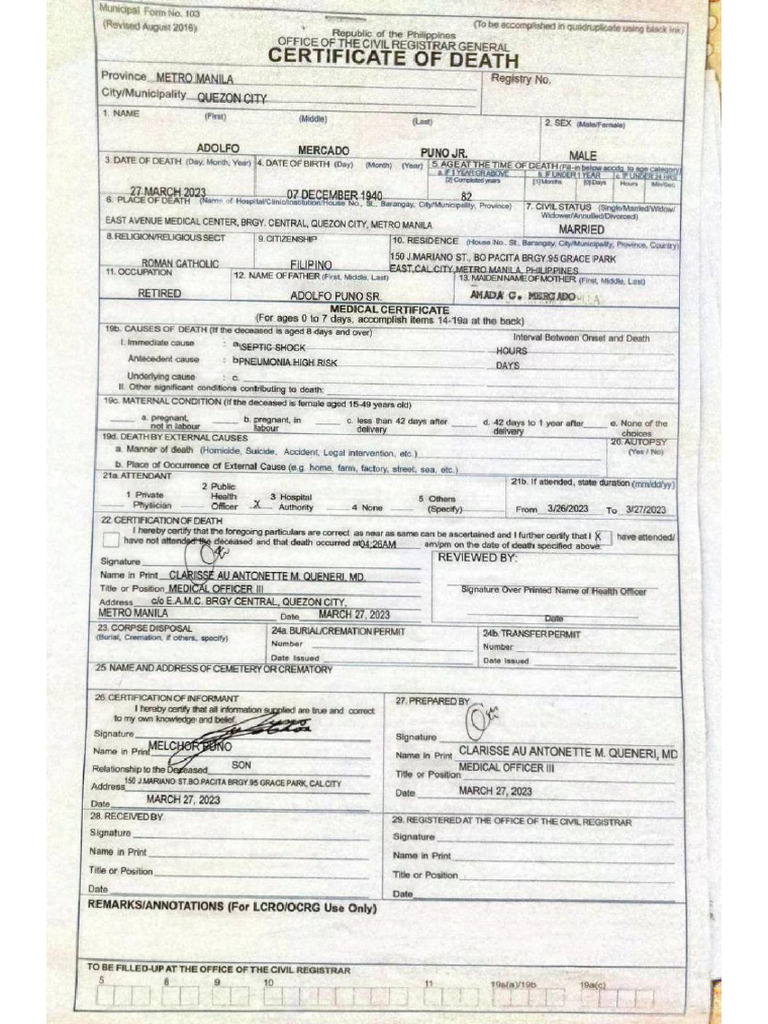 Municipal Form No. 103
(Revised August 2016)
(To be accomplished in quadruplicate using black ink)
Republic of the Philippines
OFFICE OF THE CIVIL REGISTRAR GENERAL
CERTIFICATE OF DEATH
Province METRO MANILA
Registry No.
City/Municipality QUEZON CITY
1. NAME (First) (Middle) (Last)
2. SEX (Male/Female)
ADOLFO MERCADO PUNO JR. MALE
3. DATE OF DEATH (Day, Month, Year) 4. DATE OF BIRTH (Day) (Month) (Year) 5. AGE AT THE TIME OF DEATH (Fill-in below accdg. to age category)
a. IF 1 YEAR OR ABOVE b. IF UNDER 1 YEAR c. IF UNDER 24 HRS
[2] Completed years [1] Months [0] Days Hours Min/Sec
27 MARCH 2023 07 DECEMBER 1940 82
6. PLACE OF DEATH (Name of Hospital/Clinic/Institution/House No., St., Barangay, City/Municipality, Province)
7. CIVIL STATUS (Single/Married/Widow/
Widower/Annulled/Divorced)
EAST AVENUE MEDICAL CENTER, BRGY. CENTRAL, QUEZON CITY, METRO MANILA
MARRIED
8. RELIGION/RELIGIOUS SECT 9. CITIZENSHIP 10. RESIDENCE (House No., St., Barangay, City/Municipality, Province, Country)
ROMAN CATHOLIC FILIPINO
150 J.MARIANO ST., BO PACITA BRGY.95 GRACE PARK
EAST,CAL.CITY,METRO MANILA, PHILIPPINES
11. OCCUPATION 12. NAME OF FATHER (First, Middle, Last) 13. MAIDEN NAME OF MOTHER (First, Middle, Last)
RETIRED ADOLFO PUNO SR. AMADA C. MERCADO
MEDICAL CERTIFICATE
(For ages 0 to 7 days, accomplish items 14-19a at the back)
19b. CAUSES OF DEATH (If the deceased is aged 8 days and over) Interval Between Onset and Death
I. Immediate cause : a SEPTIC SHOCK HOURS
Antecedent cause : b PNEUMONIA HIGH RISK DAYS
Underlying cause : c.
II. Other significant conditions contributing to death:
19c. MATERNAL CONDITION (If the deceased is female aged 15-49 years old)
a. pregnant, not in labour
b. pregnant, in labour
c. less than 42 days after delivery
d. 42 days to 1 year after delivery
e. None of the choices
19d. DEATH BY EXTERNAL CAUSES
20. AUTOPSY
(Yes / No)
a. Manner of death (Homicide, Suicide, Accident, Legal intervention, etc.)
b. Place of Occurrence of External Cause (e.g. home, farm, factory, street, sea, etc.)
21a. ATTENDANT
21b. If attended, state duration (mm/dd/yy)
1 Private Physician
2 Public Health Officer
X 3 Hospital Authority
4 None
5 Others (Specify)
From 3/26/2023 To 3/27/2023
22. CERTIFICATION OF DEATH
I hereby certify that the foregoing particulars are correct as near as same can be ascertained and I further certify that I X have attended/
have not attended the deceased and that death occurred at 04:26AM am/pm on the date of death specified above.
Signature
REVIEWED BY:
Name in Print CLARISSE AU ANTONETTE M. QUENERI, MD.
Title or Position MEDICAL OFFICER III
Signature Over Printed Name of Health Officer
Address c/o E.A.M.C. BRGY CENTRAL, QUEZON CITY,
METRO MANILA Date MARCH 27, 2023
Date
23. CORPSE DISPOSAL
(Burial, Cremation, if others, specify)
24a. BURIAL/CREMATION PERMIT
Number
Date Issued
24b. TRANSFER PERMIT
Number
Date Issued
25. NAME AND ADDRESS OF CEMETERY OR CREMATORY
26. CERTIFICATION OF INFORMANT
I hereby certify that all information supplied are true and correct
to my own knowledge and belief.
Signature
Name in Print MELCHOR PUNO
Relationship to the Deceased SON
Address 150 J.MARIANO ST.BO.PACITA BRGY.95 GRACE PARK, CAL CITY
Date MARCH 27, 2023
27. PREPARED BY
Signature
Name in Print CLARISSE AU ANTONETTE M. QUENERI, MD
Title or Position MEDICAL OFFICER III
Date MARCH 27, 2023
28. RECEIVED BY
Signature
Name in Print
Title or Position
Date
29. REGISTERED AT THE OFFICE OF THE CIVIL REGISTRAR
Signature
Name in Print
Title or Position
Date
REMARKS/ANNOTATIONS (For LCRO/OCRG Use Only)
TO BE FILLED-UP AT THE OFFICE OF THE CIVIL REGISTRAR
5 8 9 10 11 19a(a)/19b 19a(c)